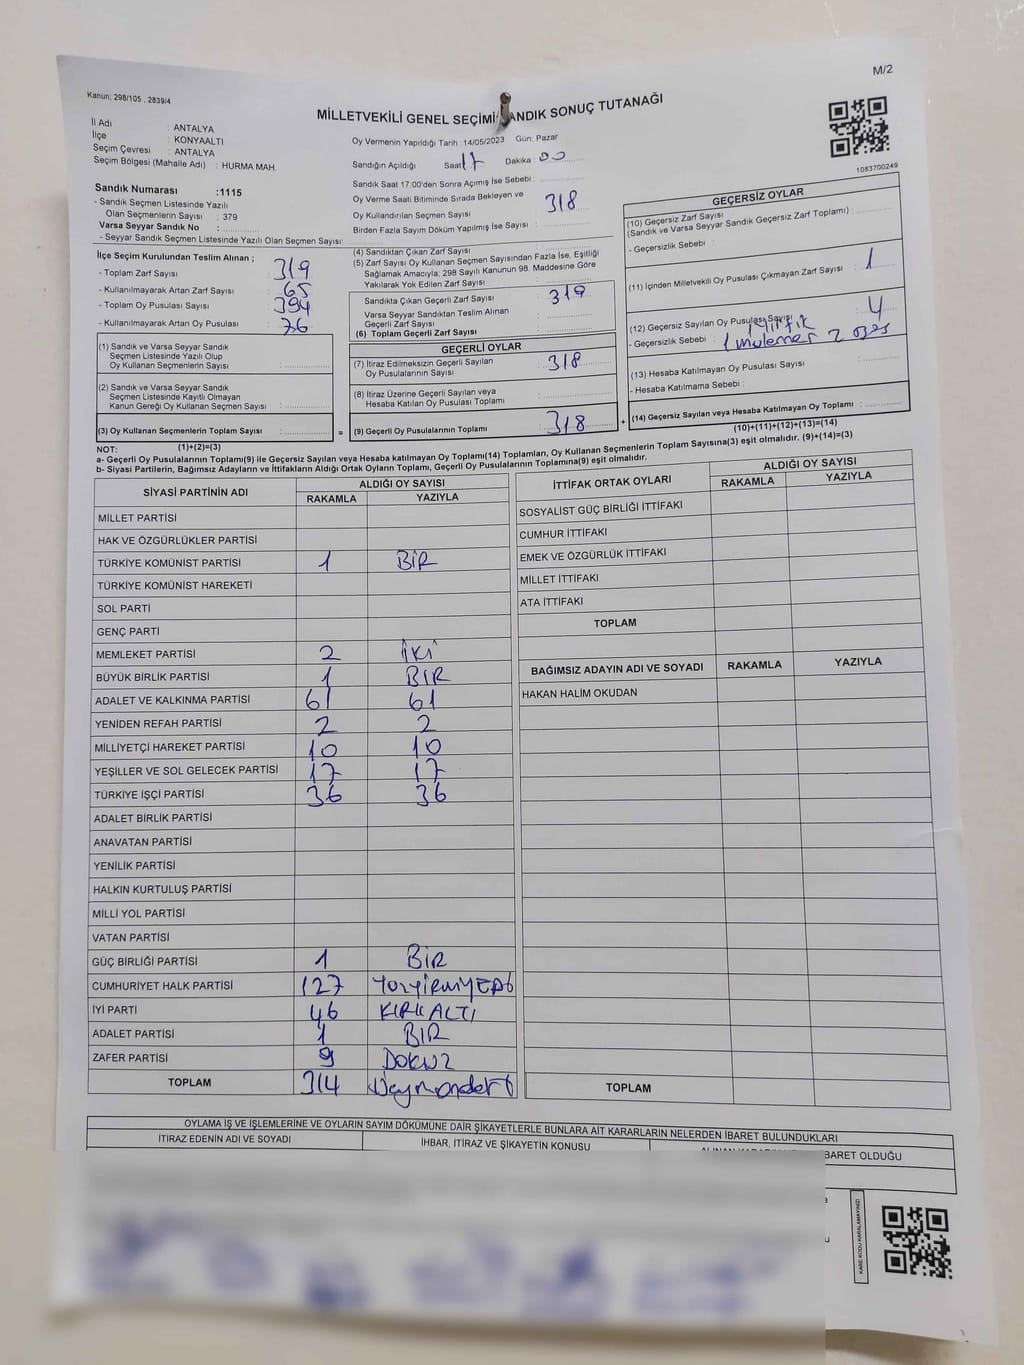 M/2
Kanun: 298/105 , 2839/4
MİLLETVEKİLİ GENEL SEÇİMİ SANDIK SONUÇ TUTANAĞI
İl Adı : ANTALYA
İlçe : KONYAALTI
Seçim Çevresi : ANTALYA
Seçim Bölgesi (Mahalle Adı) : HURMA MAH.
Sandık Numarası :1115
- Sandık Seçmen Listesinde Yazılı
Olan Seçmenlerin Sayısı : 379
Varsa Seyyar Sandık No :
- Seyyar Sandık Seçmen Listesinde Yazılı Olan Seçmen Sayısı:
Oy Vermenin Yapıldığı Tarih :14/05/2023 Gün: Pazar
Sandığın Açıldığı Saat 17 Dakika : 00
Sandık Saat 17:00'den Sonra Açımış İse Sebebi :
Oy Verme Saati Bitiminde Sırada Bekleyen ve
Oy Kullandırılan Seçmen Sayısı 318
Birden Fazla Sayım Döküm Yapılmış İse Sayısı :
1083700249
İlçe Seçim Kurulundan Teslim Alınan ;
- Toplam Zarf Sayısı : 319
- Kullanılmayarak Artan Zarf Sayısı : 65
- Toplam Oy Pusulası Sayısı : 394
- Kullanılmayarak Artan Oy Pusulası : 76
(1) Sandık ve Varsa Seyyar Sandık
Seçmen Listesinde Yazılı Olup
Oy Kullanan Seçmenlerin Sayısı :
(2) Sandık ve Varsa Seyyar Sandık
Seçmen Listesinde Kayıtlı Olmayan
Kanun Gereği Oy Kullanan Seçmen Sayısı :
(3) Oy Kullanan Seçmenlerin Toplam Sayısı :
(1)+(2)=(3)
(4) Sandıktan Çıkan Zarf Sayısı :
(5) Zarf Sayısı Oy Kullanan Seçmen Sayısından Fazla İse, Eşitliği
Sağlamak Amacıyla; 298 Sayılı Kanunun 98. Maddesine Göre
Yakılarak Yok Edilen Zarf Sayısı :
Sandıkta Çıkan Geçerli Zarf Sayısı : 319
Varsa Seyyar Sandıktan Teslim Alınan
Geçerli Zarf Sayısı :
(6) Toplam Geçerli Zarf Sayısı :
=
GEÇERLİ OYLAR
(7) İtiraz Edilmeksizin Geçerli Sayılan
Oy Pusulalarının Sayısı : 318
(8) İtiraz Üzerine Geçerli Sayılan veya
Hesaba Katılan Oy Pusulası Toplamı :
(9) Geçerli Oy Pusulalarının Toplamı : 318
+
GEÇERSİZ OYLAR
(10) Geçersiz Zarf Sayısı
(Sandık ve Varsa Seyyar Sandık Geçersiz Zarf Toplamı) :
- Geçersizlik Sebebi :
(11) İçinden Milletvekili Oy Pusulası Çıkmayan Zarf Sayısı : 1
(12) Geçersiz Sayılan Oy Pusulası Sayısı : 4
- Geçersizlik Sebebi :
(13) Hesaba Katılmayan Oy Pusulası Sayısı :
- Hesaba Katılmama Sebebi :
(14) Geçersiz Sayılan veya Hesaba Katılmayan Oy Toplamı :
(10)+(11)+(12)+(13)=(14)
NOT:
a- Geçerli Oy Pusulalarının Toplamı(9) ile Geçersiz Sayılan veya Hesaba katılmayan Oy Toplamı(14) Toplamları, Oy Kullanan Seçmenlerin Toplam Sayısına(3) eşit olmalıdır. (9)+(14)=(3)
b- Siyasi Partilerin, Bağımsız Adayların ve İttifakların Aldığı Ortak Oyların Toplamı, Geçerli Oy Pusulalarının Toplamına(9) eşit olmalıdır.
SİYASİ PARTİNİN ADI ALDIĞI OY SAYISI
RAKAMLA YAZIYLA
MİLLET PARTİSİ
HAK VE ÖZGÜRLÜKLER PARTİSİ
TÜRKİYE KOMÜNİST PARTİSİ 1 BİR
TÜRKİYE KOMÜNİST HAREKETİ
SOL PARTİ
GENÇ PARTİ
MEMLEKET PARTİSİ 2 İKİ
BÜYÜK BİRLİK PARTİSİ 1 BIR
ADALET VE KALKINMA PARTİSİ 61 61
YENİDEN REFAH PARTİSİ 2 2
MİLLİYETÇİ HAREKET PARTİSİ 10 10
YEŞİLLER VE SOL GELECEK PARTİSİ 17 17
TÜRKİYE İŞÇİ PARTİSİ 36 36
ADALET BİRLİK PARTİSİ
ANAVATAN PARTİSİ
YENİLİK PARTİSİ
HALKIN KURTULUŞ PARTİSİ
MİLLİ YOL PARTİSİ
VATAN PARTİSİ
GÜÇ BİRLİĞİ PARTİSİ 1 BİR
CUMHURİYET HALK PARTİSİ 127
İYİ PARTİ 46 KIRKALTI
ADALET PARTİSİ 1 BIR
ZAFER PARTİSİ 9 DOKUZ
TOPLAM 314
İTTİFAK ORTAK OYLARI ALDIĞI OY SAYISI
RAKAMLA YAZIYLA
SOSYALİST GÜÇ BİRLİĞİ İTTİFAKI
CUMHUR İTTİFAKI
EMEK VE ÖZGÜRLÜK İTTİFAKI
MİLLET İTTİFAKI
ATA İTTİFAKI
TOPLAM
BAĞIMSIZ ADAYIN ADI VE SOYADI RAKAMLA YAZIYLA
HAKAN HALİM OKUDAN
TOPLAM
OYLAMA İŞ VE İŞLEMLERİNE VE OYLARIN SAYIM DÖKÜMÜNE DAİR ŞİKAYETLERLE BUNLARA AİT KARARLARIN NELERDEN İBARET BULUNDUKLARI
İTİRAZ EDENİN ADI VE SOYADI İHBAR, İTİRAZ VE ŞİKAYETİN KONUSU BARET OLDUĞU
KARE KODU KARALAMAYINIZ!